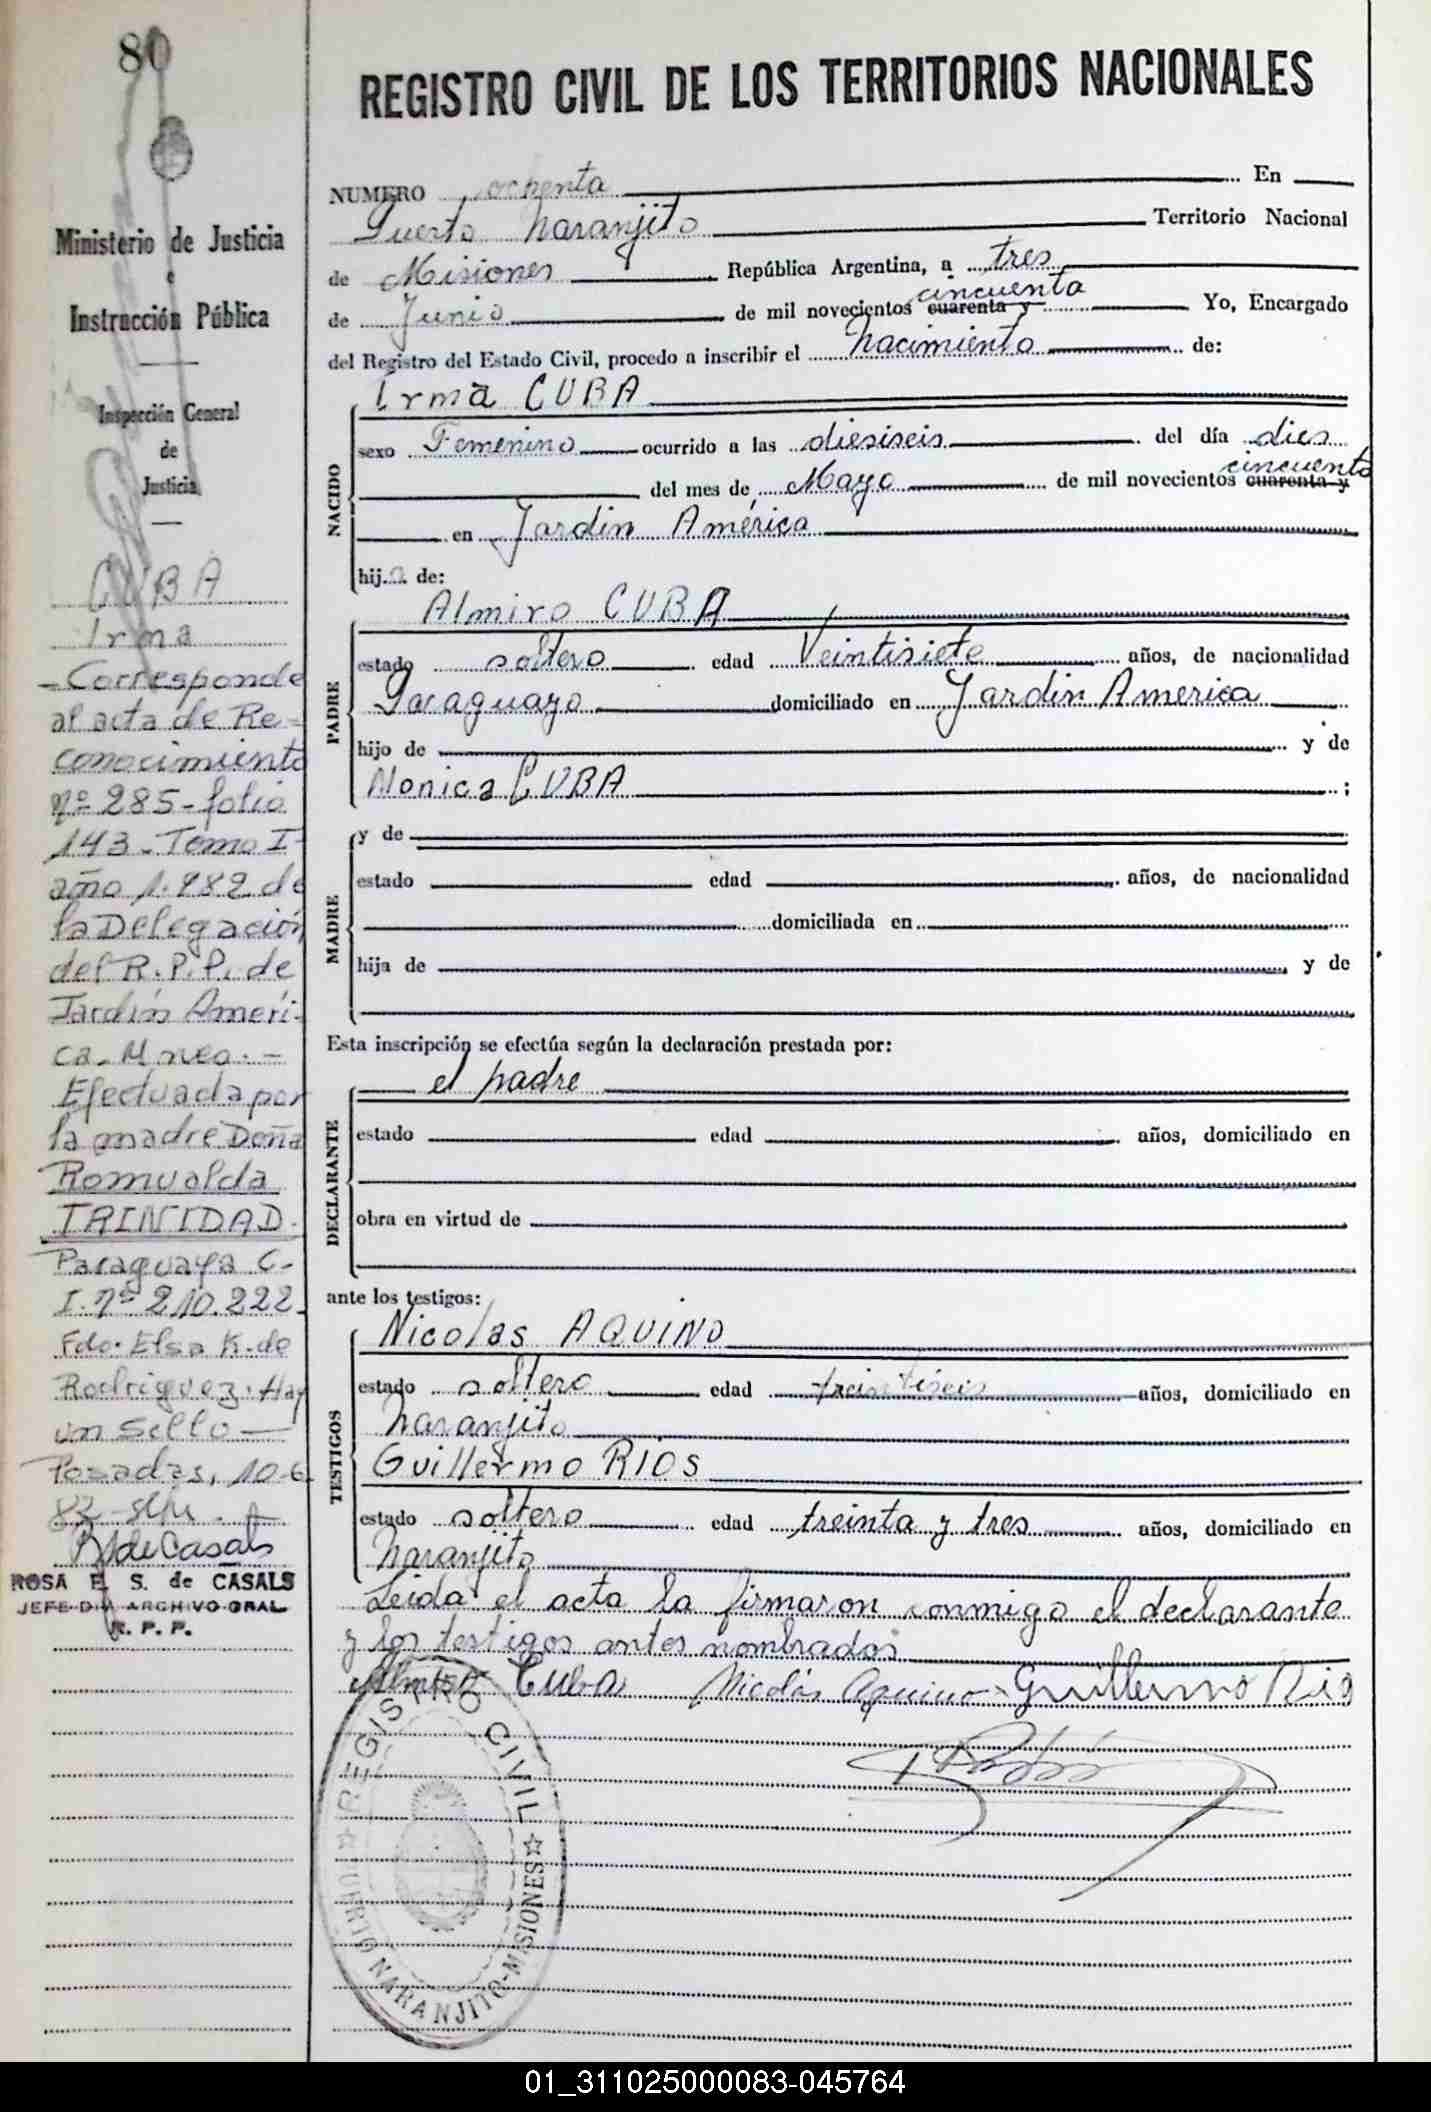 80
REGISTRO CIVIL DE LOS TERRITORIOS NACIONALES
Ministerio de Justicia
e
Instrucción Pública
Inspección General
de
Justicia
CUBA
Irma
- Corresponde
al acta de Re-
conocimiento
nº 285 - folio
143 - Tomo I-
año 1.982 de
la Delegación
del R.P.P. de
Jardín Améri-
ca. Mnes. -
Efectuada por
la madre Doña
Romualda
TRINIDAD.
Paraguaya C-
I. nº 210.222.
Fdo. Elsa K. de
Rodriguez. Hay
un Sello -
Posadas, 10-6-
R de Casals
ROSA E. S. de CASALS
JEFE DIV. ARCHIVO GRAL.
R. P. P.
NUMERO ochenta En
Puerto Naranjito Territorio Nacional
de Misiones República Argentina, a tres
de Junio de mil novecientos cuarenta y cincuenta Yo, Encargado
del Registro del Estado Civil, procedo a inscribir el Nacimiento de:
NACIDO
Irma CUBA
sexo Femenino ocurrido a las diesiseis del día dies
del mes de Mayo de mil novecientos cuarenta y cincuenta
en Jardin América
hija de:
PADRE
Almiro CUBA
estado soltero edad Veintisiete años, de nacionalidad
Paraguayo domiciliado en Jardin America
hijo de y de
Monica CUBA ;
MADRE
y de
estado edad años, de nacionalidad
domiciliada en
hija de y de
Esta inscripción se efectúa según la declaración prestada por:
DECLARANTE
el padre
estado edad años, domiciliado en
obra en virtud de
ante los testigos:
TESTIGOS
Nicolas AQUINO
estado soltero edad treintiseis años, domiciliado en
Naranjito
Guillermo RIOS
estado soltero edad treinta y tres años, domiciliado en
Naranjito
Leida el acta la firmaron conmigo el declarante
y los testigos antes nombrados
Almiro Cuba Nicolás Aquino Guillermo Rios
REGISTRO CIVIL
PUERTO NARANJITO-MISIONES
01_311025000083-045764